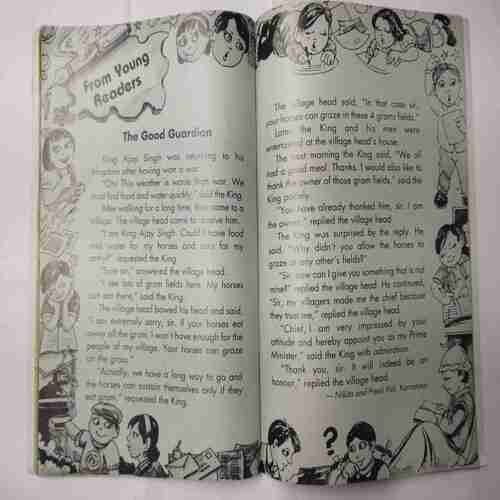 From Young
Readers
The Good Guardian
King Ajay Singh was returning to his
kingdom after having won a war.
"Oh! This weather is worse than war. We
must find food and water quickly," said the King.
After walking for a long time, they came to a
village. The village head came to receive him.
"I am King Ajay Singh. Could I have food
and water for my horses and also for my
army?" requested the King.
"Sure sir," answered the village head.
"I see lots of gram fields here. My horses
can eat them," said the King.
The village head bowed his head and said,
"I am extremely sorry, sir. If your horses eat
away all the gram, I won't have enough for the
people of my village. Your horses can graze
on the grass."
"Actually, we have a long way to go and
the horses can sustain themselves only if they
eat gram," requested the King.
The village head said, "In that case sir,
your horses can graze in these 4 grams fields."
Later, the King and his men were
entertained at the village head's house.
The next morning the King said, "We all
had a good meal. Thanks. I would also like to
thank the owner of those gram fields," said the
King politely.
"You have already thanked him, sir. I am
the owner," replied the village head.
The King was surprised by the reply. He
said, "Why didn't you allow the horses to
graze at any other's fields?"
"Sir, how can I give you something that is not
mine?" replied the village head. He continued,
"Sir, my villagers made me the chief because
they trust me," replied the village head.
"Chief, I am very impressed by your
attitude and hereby appoint you as my Prime
Minister," said the King with admiration.
"Thank you, sir. It will indeed be an
honour," replied the village head.
— Nikita and Preeti Pali, Karnataka
?